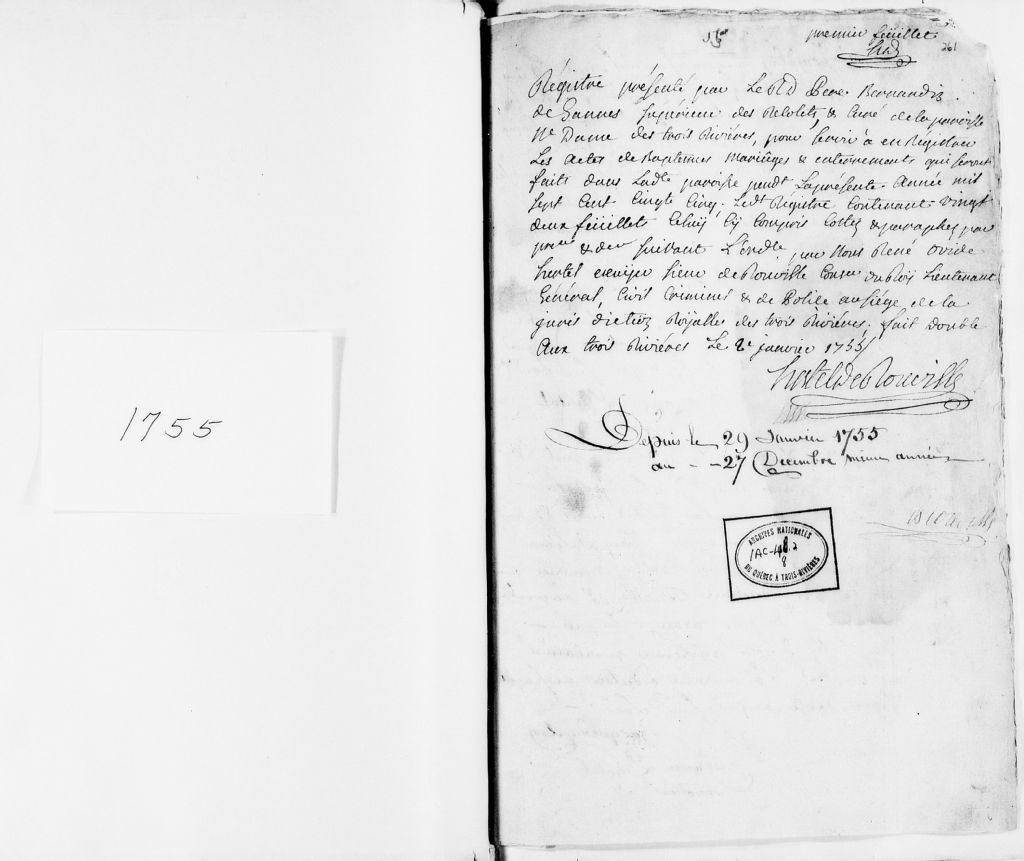 1755
premier feüillet
hrd
261
Régistre présenté par Le RD Pere Bernardin
de Gannes Supérieur des Recolets, & Curé de la paroisse
Ne Dame des trois Rivières, pour Servir à enRégistrer
Les Actes de Baptemes Mariâges & enterrements qui seront
faits dans Ladte paroisse pendt La présente Année mil
Sept Cent Cinqte Cinq. Ledt Régistre Contenant vingt
deux feüillets Celuÿ Cÿ Compris Cottez & paraphez par
pre & der Suivant L'ordce par Nous René Ovide
hertel ecuyer Sieur de Rouville Conser du Roÿ Lieutenant
Général, Civil Criminel & de Police au Siége de la
juris diction Roÿalle des trois Rivières. fait double
Aux trois Rivières Le 2e janvier 1755/
hertel de Rouville
Depuis le 29 Janvier 1755
au - - 27 Decembre même année
ARCHIVES NATIONALES
1AC-48.2
8
DU QUÉBEC À TROIS-RIVIÈRES